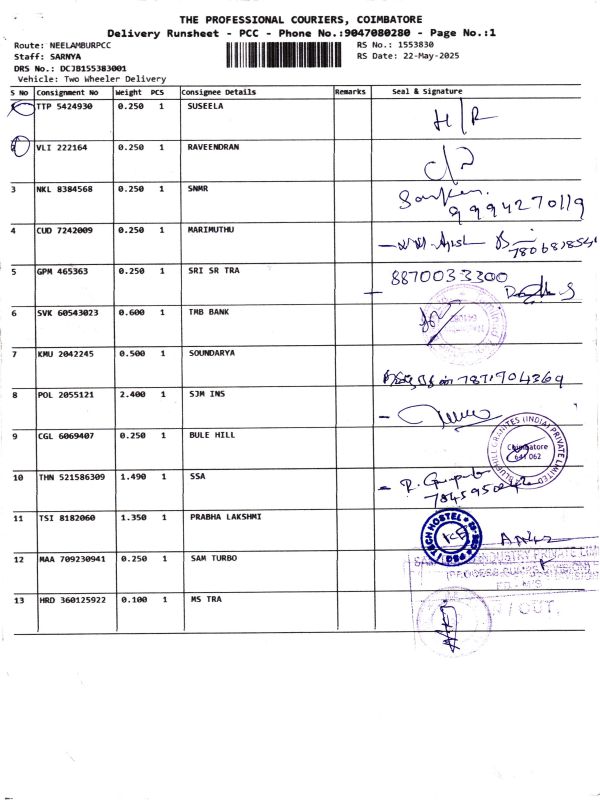 THE PROFESSIONAL COURIERS, COIMBATORE
Delivery Runsheet - PCC - Phone No.:9047080280 - Page No.:1
Route: NEELAMBURPCC RS No.: 1553830
Staff: SARNYA RS Date: 22-May-2025
DRS No.: DCJB155383001
Vehicle: Two Wheeler Delivery
S No Consignment No Weight PCS Consignee Details Remarks Seal & Signature
TTP 5424930 0.250 1 SUSEELA H/R
VLI 222164 0.250 1 RAVEENDRAN
3 NKL 8384568 0.250 1 SNMR
9994270119
4 CUD 7242009 0.250 1 MARIMUTHU
5 GPM 465363 0.250 1 SRI SR TRA 8870033300
6 SVK 60543023 0.600 1 TMB BANK
7 KMU 2042245 0.500 1 SOUNDARYA 7871704369
8 POL 2055121 2.400 1 SJM INS
9 CGL 6069407 0.250 1 BULE HILL
BLUEHILL GRANITES (INDIA) PRIVATE LIMITED
Coimbatore
641 062
10 THN 521586309 1.490 1 SSA
11 TSI 8182060 1.350 1 PRABHA LAKSHMI
TECH HOSTEL
12 MAA 709230941 0.250 1 SAM TURBO
INDUSTRY PRIVATE LIM
13 HRD 360125922 0.100 1 MS TRA
/ OUT.